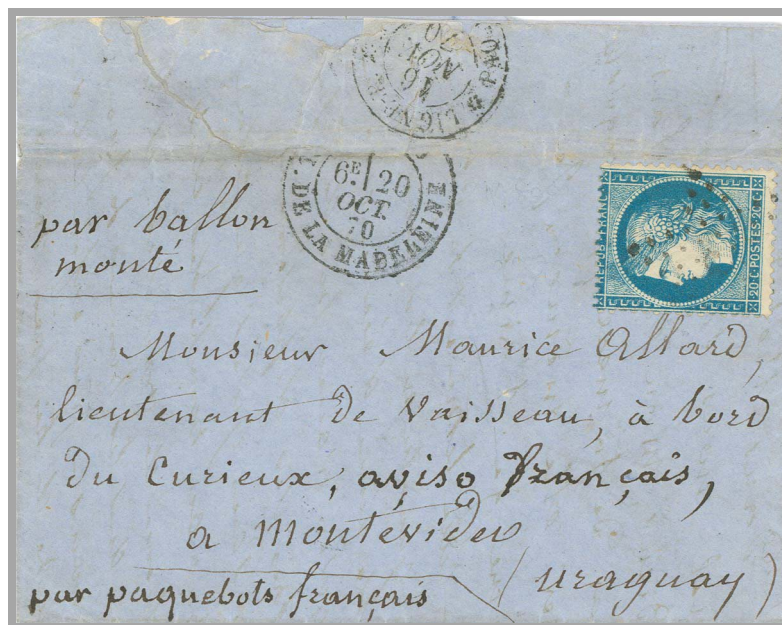 16
NOV
70
LIGNE
6E 20
OCT.
70
. DE LA MADELEINE
20·C·POSTES·20·C
par ballon
monté
Monsieur Maurice Allard,
lieutenant de Vaisseau, à bord
du Curieux, aviso français,
a Montévideo
(uraguay)
par paquebots français